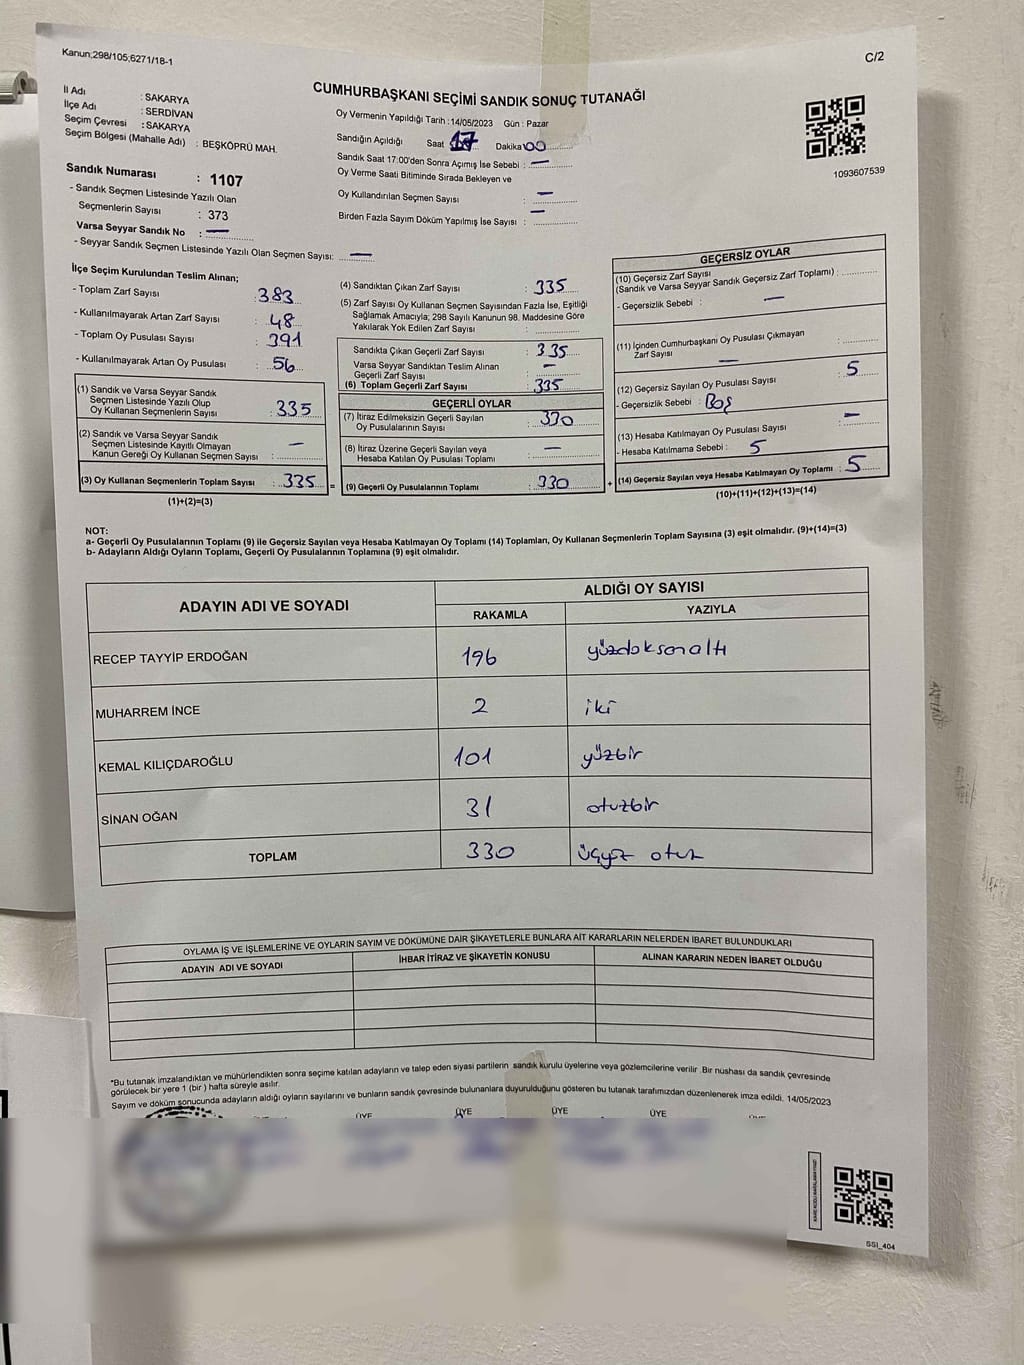 Kanun;298/105;6271/18-1
C/2
İl Adı : SAKARYA
İlçe Adı : SERDİVAN
Seçim Çevresi : SAKARYA
Seçim Bölgesi (Mahalle Adı) : BEŞKÖPRÜ MAH.
CUMHURBAŞKANI SEÇİMİ SANDIK SONUÇ TUTANAĞI
Oy Vermenin Yapıldığı Tarih :14/05/2023 Gün : Pazar
Sandığın Açıldığı Saat 17 Dakika 00
Sandık Saat 17:00'den Sonra Açılmış İse Sebebi : —
Oy Verme Saati Bitiminde Sırada Bekleyen ve
Oy Kullandırılan Seçmen Sayısı : —
Birden Fazla Sayım Döküm Yapılmış İse Sayısı : —
1093607539
Sandık Numarası : 1107
- Sandık Seçmen Listesinde Yazılı Olan
Seçmenlerin Sayısı : 373
Varsa Seyyar Sandık No : —
- Seyyar Sandık Seçmen Listesinde Yazılı Olan Seçmen Sayısı: —
İlçe Seçim Kurulundan Teslim Alınan;
- Toplam Zarf Sayısı : 383
- Kullanılmayarak Artan Zarf Sayısı : 48
- Toplam Oy Pusulası Sayısı : 391
- Kullanılmayarak Artan Oy Pusulası : 56
(1) Sandık ve Varsa Seyyar Sandık
Seçmen Listesinde Yazılı Olup
Oy Kullanan Seçmenlerin Sayısı : 335
(2) Sandık ve Varsa Seyyar Sandık
Seçmen Listesinde Kayıtlı Olmayan
Kanun Gereği Oy Kullanan Seçmen Sayısı : —
(3) Oy Kullanan Seçmenlerin Toplam Sayısı : 335 =
(1)+(2)=(3)
(4) Sandıktan Çıkan Zarf Sayısı : 335
(5) Zarf Sayısı Oy Kullanan Seçmen Sayısından Fazla İse, Eşitliği
Sağlamak Amacıyla; 298 Sayılı Kanunun 98. Maddesine Göre
Yakılarak Yok Edilen Zarf Sayısı :
Sandıkta Çıkan Geçerli Zarf Sayısı : 335
Varsa Seyyar Sandıktan Teslim Alınan
Geçerli Zarf Sayısı : —
(6) Toplam Geçerli Zarf Sayısı : 335
GEÇERLİ OYLAR
(7) İtiraz Edilmeksizin Geçerli Sayılan
Oy Pusulalarının Sayısı : 330
(8) İtiraz Üzerine Geçerli Sayılan veya
Hesaba Katılan Oy Pusulası Toplamı : —
(9) Geçerli Oy Pusulalarının Toplamı : 330 +
GEÇERSİZ OYLAR
(10) Geçersiz Zarf Sayısı
(Sandık ve Varsa Seyyar Sandık Geçersiz Zarf Toplamı) :
- Geçersizlik Sebebi : —
(11) İçinden Cumhurbaşkanı Oy Pusulası Çıkmayan
Zarf Sayısı : —
(12) Geçersiz Sayılan Oy Pusulası Sayısı : 5
- Geçersizlik Sebebi : Boş
(13) Hesaba Katılmayan Oy Pusulası Sayısı : —
- Hesaba Katılmama Sebebi : 5
(14) Geçersiz Sayılan veya Hesaba Katılmayan Oy Toplamı : 5
(10)+(11)+(12)+(13)=(14)
NOT:
a- Geçerli Oy Pusulalarının Toplamı (9) ile Geçersiz Sayılan veya Hesaba Katılmayan Oy Toplamı (14) Toplamları, Oy Kullanan Seçmenlerin Toplam Sayısına (3) eşit olmalıdır. (9)+(14)=(3)
b- Adayların Aldığı Oyların Toplamı, Geçerli Oy Pusulalarının Toplamına (9) eşit olmalıdır.
ADAYIN ADI VE SOYADI
ALDIĞI OY SAYISI
RAKAMLA YAZIYLA
RECEP TAYYİP ERDOĞAN 196 yüzdoksanaltı
MUHARREM İNCE 2 iki
KEMAL KILIÇDAROĞLU 101 yüzbir
SİNAN OĞAN 31 otuzbir
TOPLAM 330 üçyz otuz
OYLAMA İŞ VE İŞLEMLERİNE VE OYLARIN SAYIM VE DÖKÜMÜNE DAİR ŞİKAYETLERLE BUNLARA AİT KARARLARIN NELERDEN İBARET BULUNDUKLARI
ADAYIN ADI VE SOYADI İHBAR İTİRAZ VE ŞİKAYETİN KONUSU ALINAN KARARIN NEDEN İBARET OLDUĞU
*Bu tutanak imzalandıktan ve mühürlendikten sonra seçime katılan adayların ve talep eden siyasi partilerin sandık kurulu üyelerine veya gözlemcilerine verilir .Bir nüshası da sandık çevresinde
görülecek bir yere 1 (bir ) hafta süreyle asılır.
Sayım ve döküm sonucunda adayların aldığı oyların sayılarını ve bunların sandık çevresinde bulunanlara duyurulduğunu gösteren bu tutanak tarafımızdan düzenlenerek imza edildi. 14/05/2023
ÜYE ÜYE ÜYE ÜYE
SSI_404